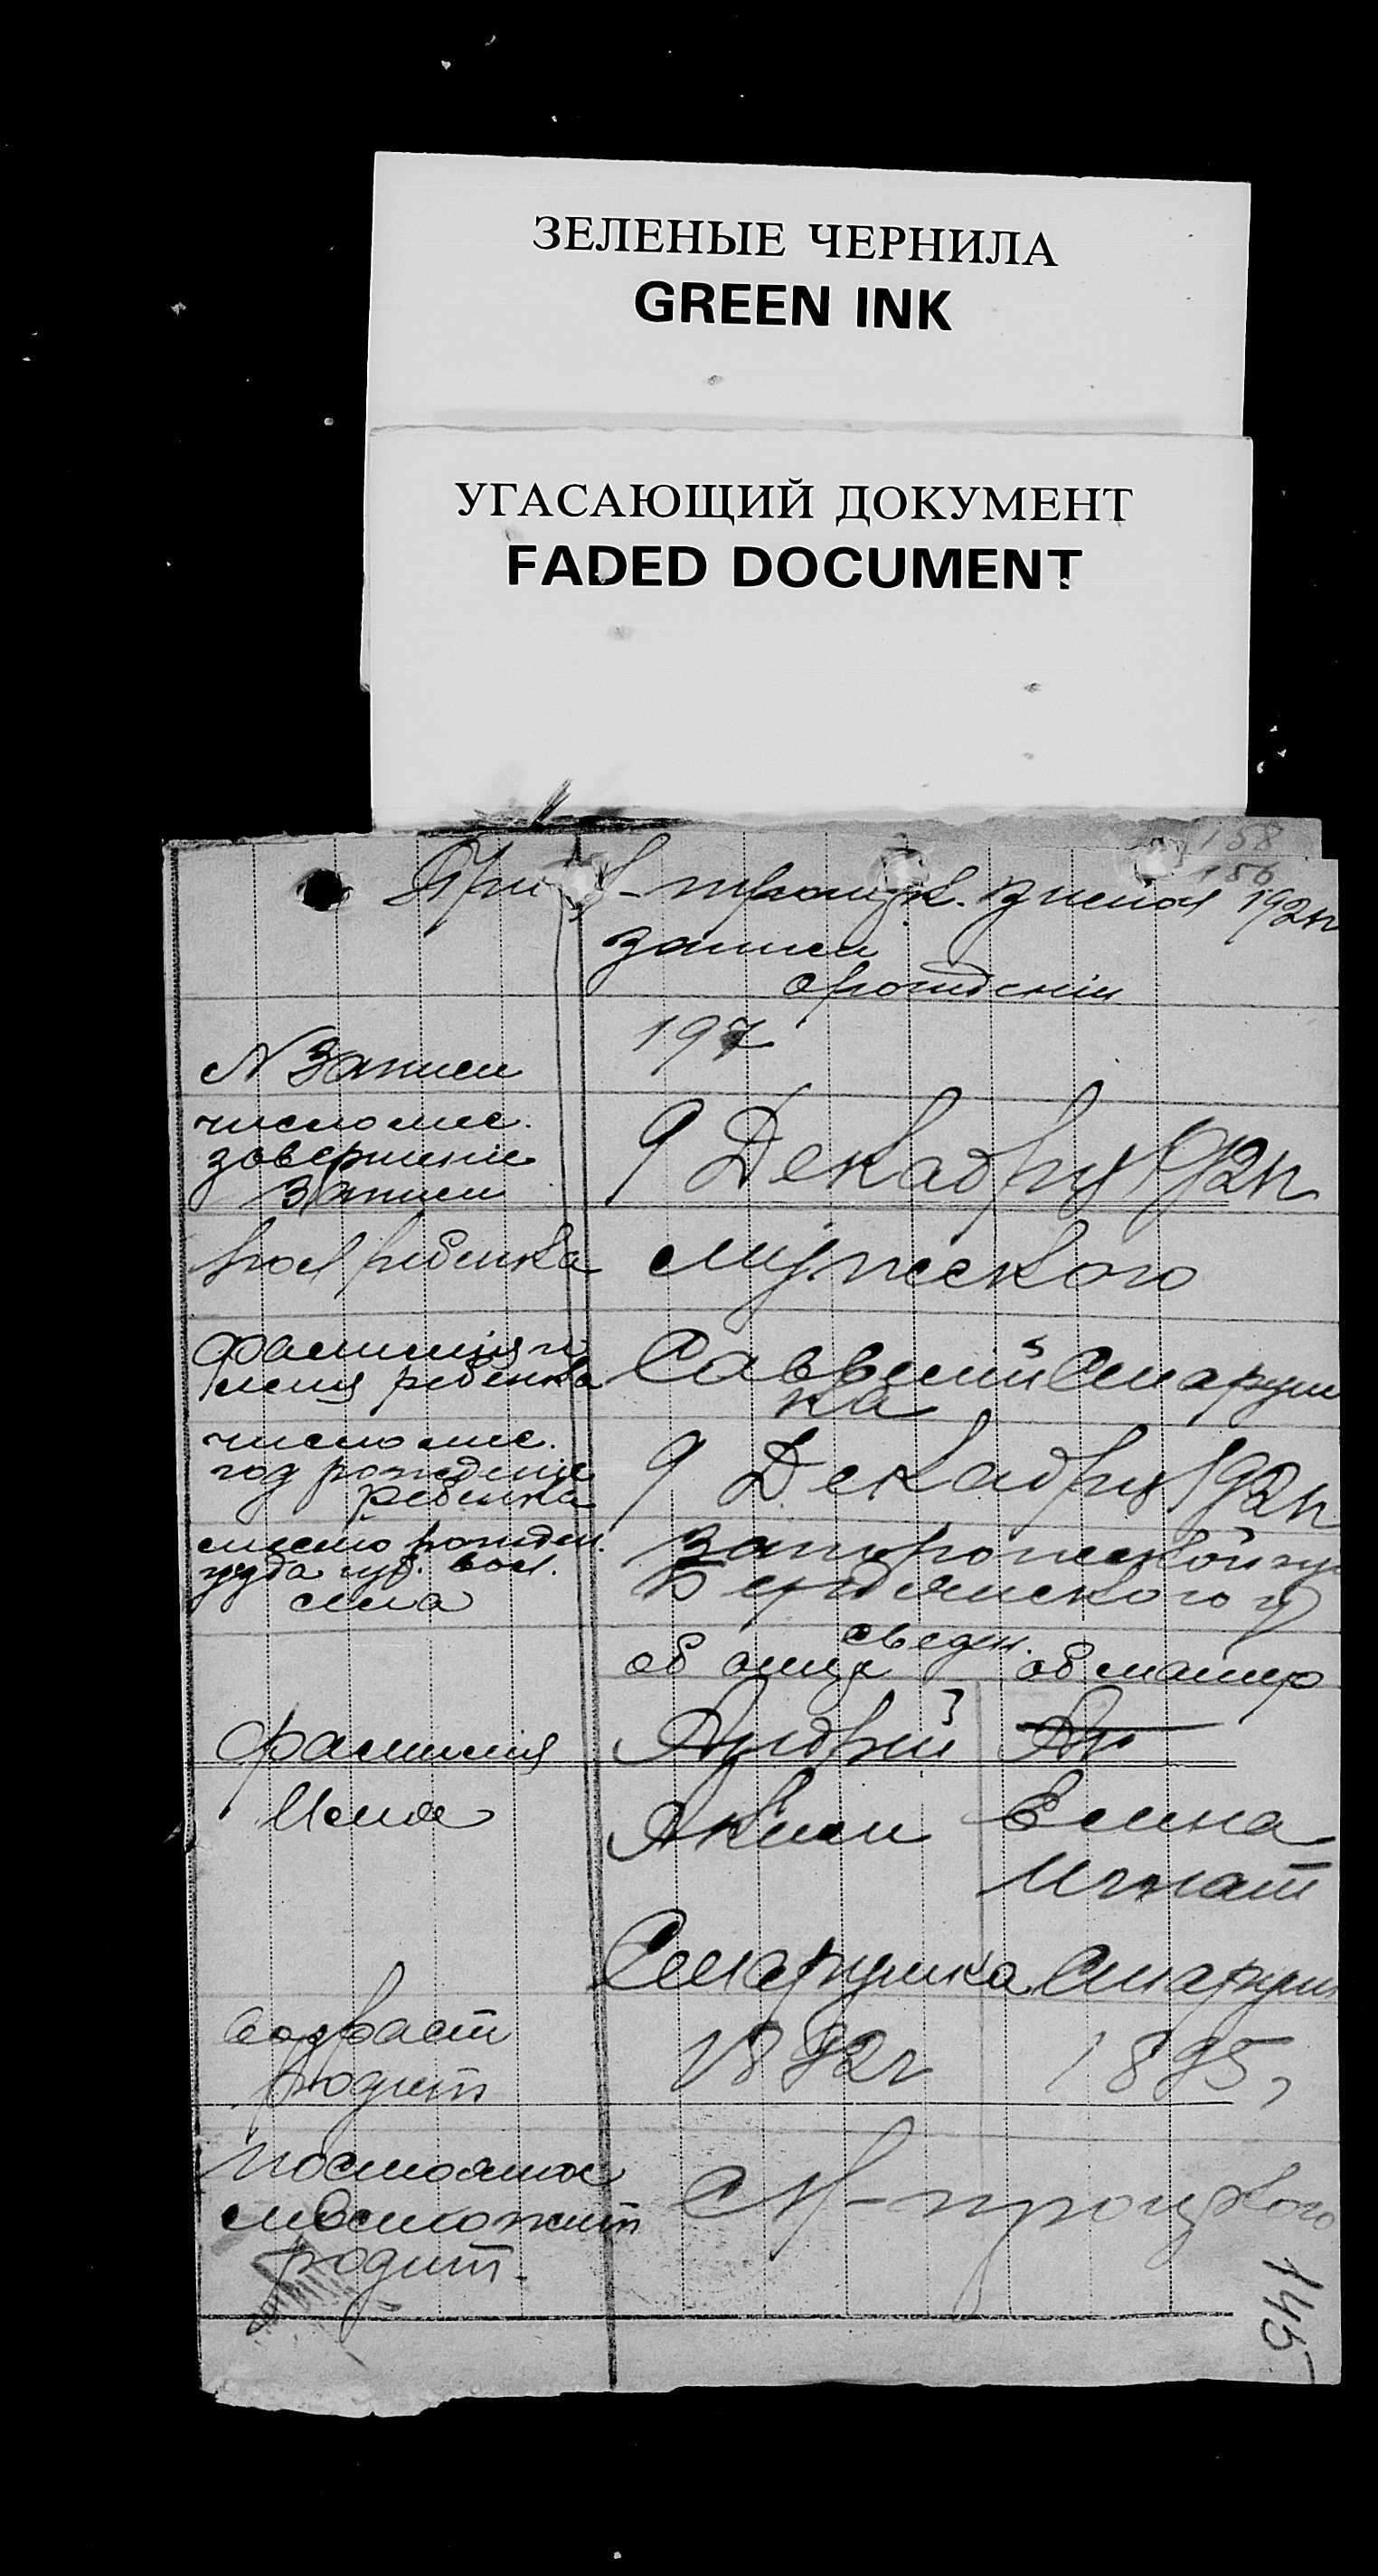 ЗЕЛЕНЫЕ ЧЕРНИЛА
GREEN INK
УГАСАЮЩИЙ ДОКУМЕНТ
FADED DOCUMENT
158
156
записи
о рождении
N Записи 197
число мес.
завершение
Записи
9 Декабря 192
пол ребенка мужского
Фамилия и
имя ребенка
Савелий Старуш
ка
число мес.
год рождение
ребенка
9 Декабря 192
место рожден.
уезда губ. вол.
села
Запорожской гу
Бердянского у
сведен.
об отце об матер
фамилия Андрей
Имя Яким Елена
Игнат
Старушка Старуш
возраст
родит
1892г 1895
Постоянное
место жит
родит.
троицкого
145